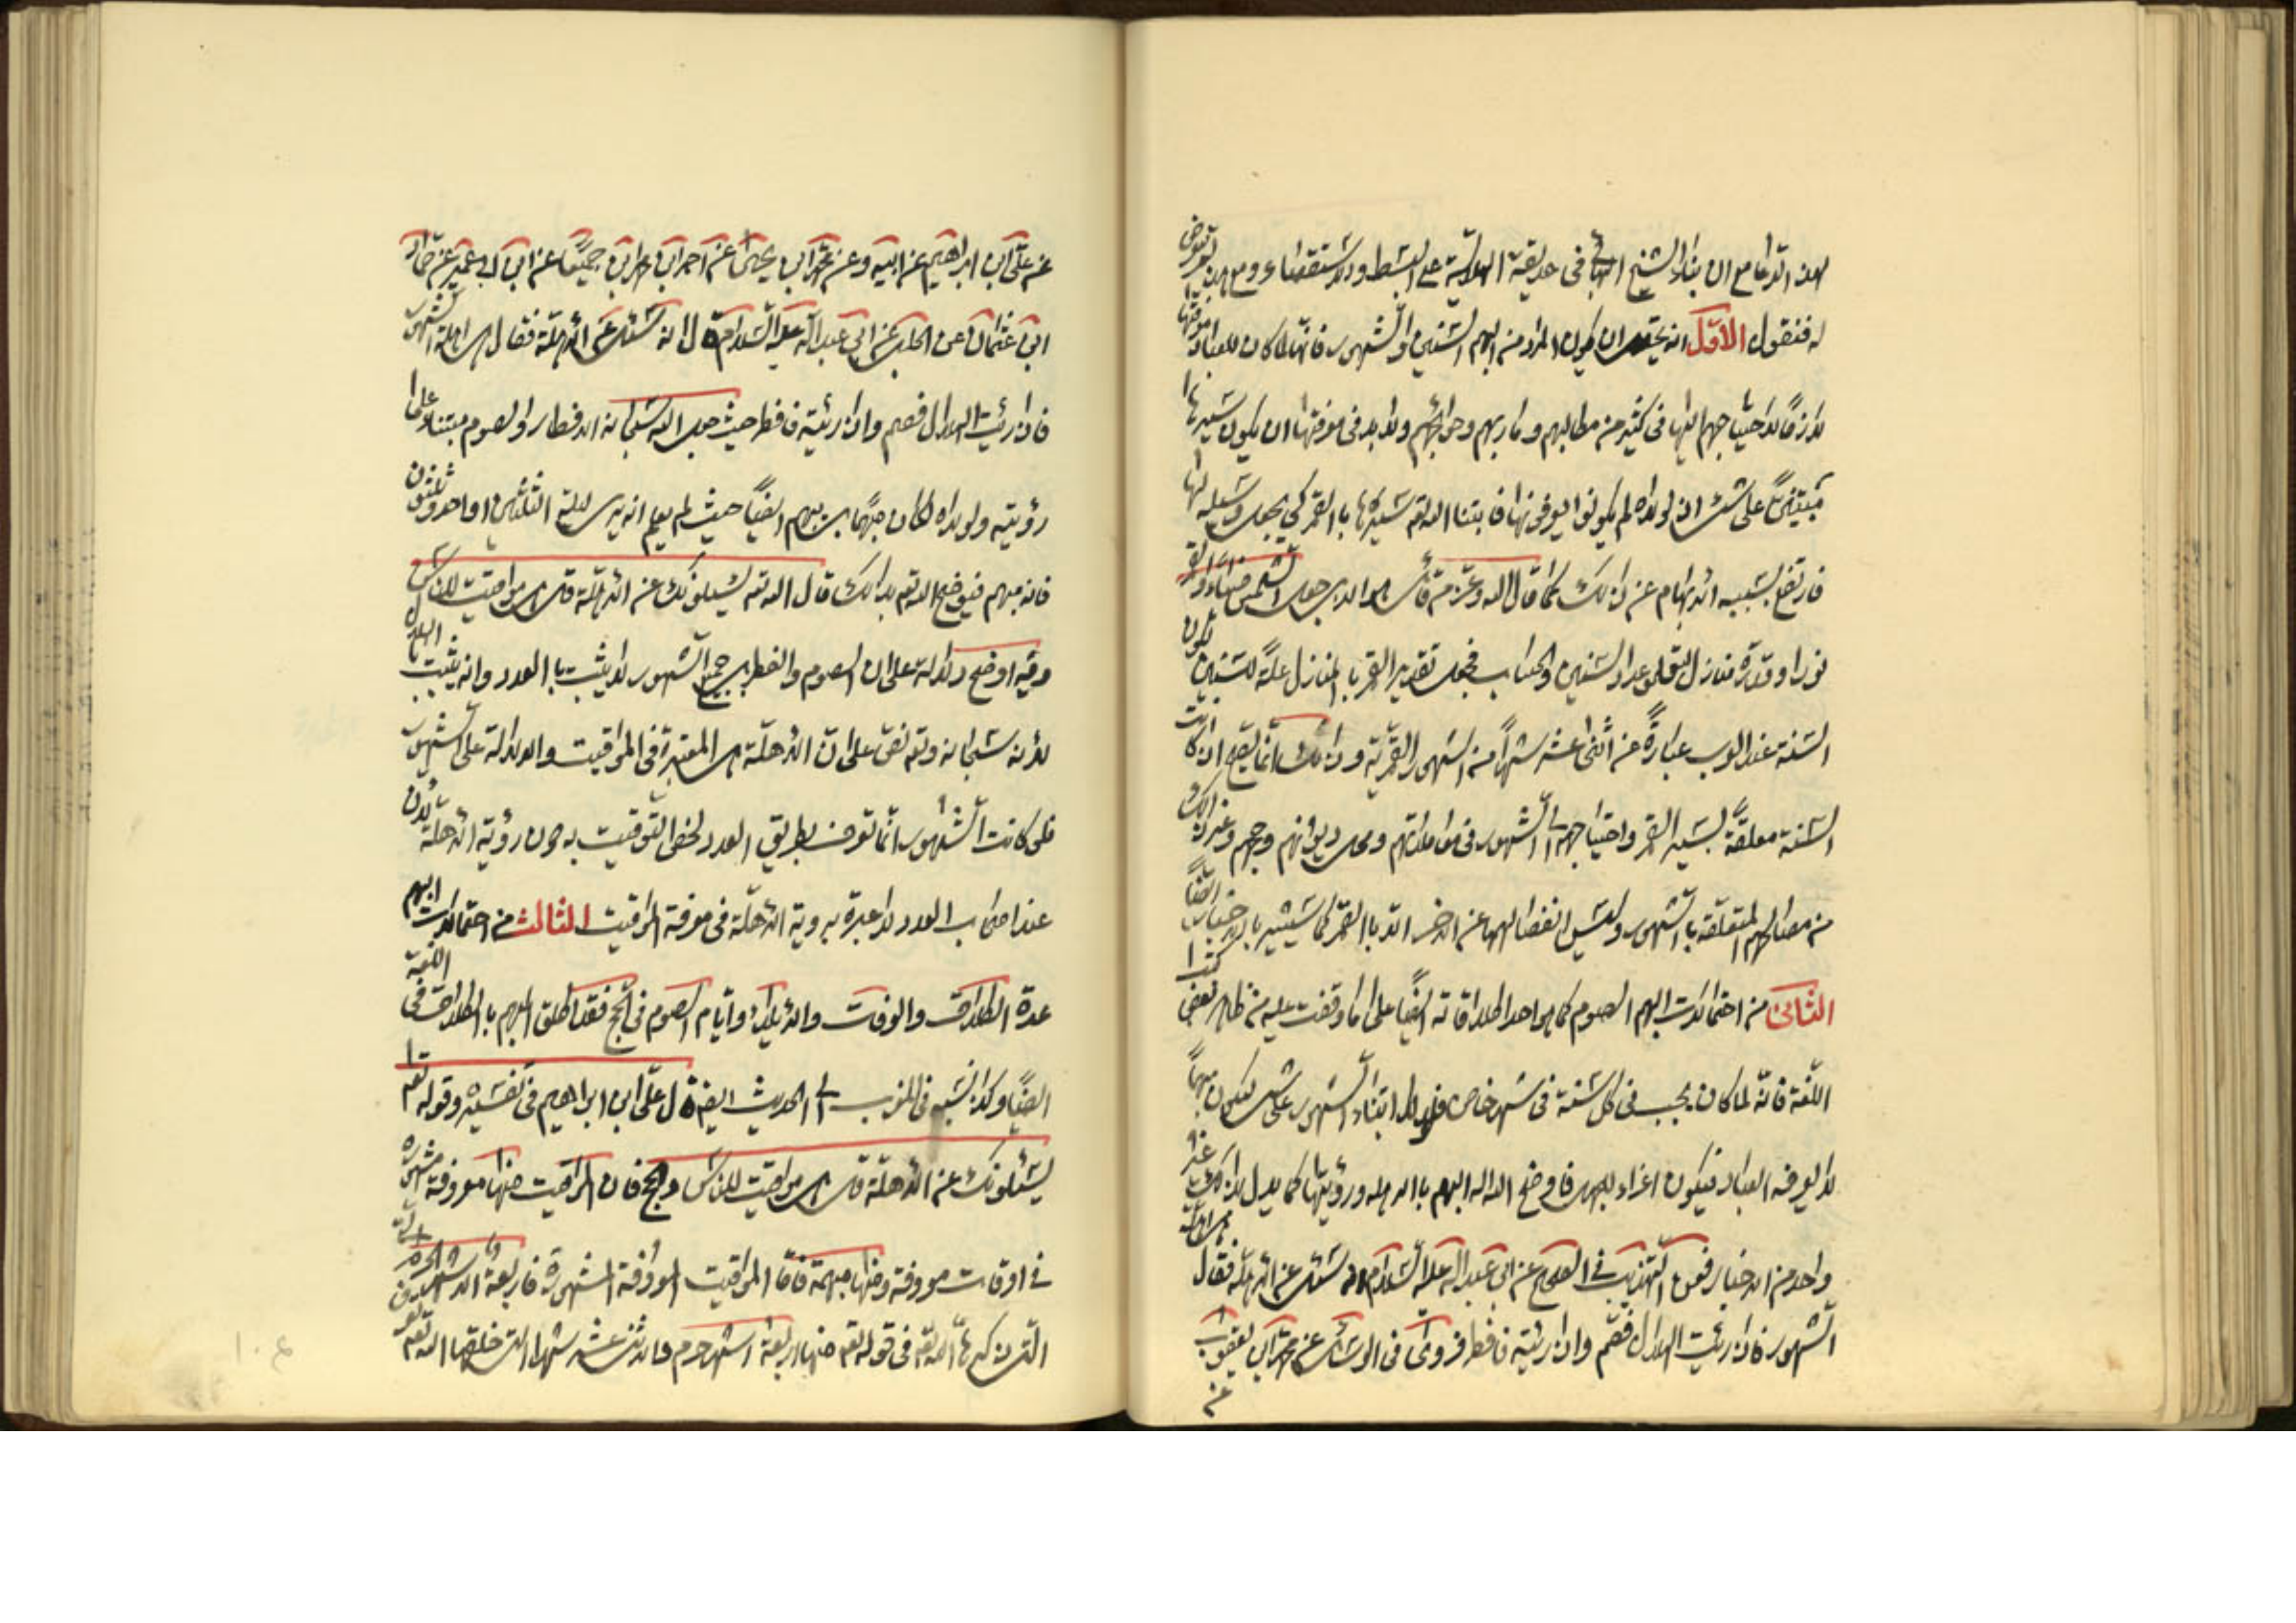 هذا الدعاء مع ان بناء الشيخ البهائي في حديقة الهلالية على البسط والاستقصاء ومع هذا لم يتعرض
له فنقول الأوّل انه يحتمل ان يكون المراد من البهم السّنين والشّهور فانّها لما كان للعباد معرفتها
لازمًا لاحتياجهم اليها في كثير من مطالبهم ومآربهم وحوائجهم ولابد في معرفتها ان يكون سيرها
مبتنيًا على شئ اذ لولاه لم يكونوا يعرفونها فابتنا الله تعه سيرها بالقمر كي يجعل وسيلة لها
فارتفع بسببه الابهام عن ذلك كما قال الله وعز من قائل هو الذي جعل الشمس ضياء والقمر
نورا وقدّره منازل لتعلموا عدد السنين والحساب فجعل تقدير القمر بالمنازل علّة للسّنين لكون
السّنة عند العرب عبارة عن اثنى عشر شهرًا من الشهور القمريّة وذلك انّما يصح ان كانت
السّنة معلقة بسير القمر واحتياجهم الى الشّهور في معاملاتهم ومحل ديونهم وحجهم وغير ذلك
من مصالحهم المتعلّقة بالشّهور وليس انفصالهما عن الاخر الا بالقمر كما سيشير بالاخبار ايضًا
الثّاني من احتمالات البهم الصوم كما هو احد اطلاقاته ايضًا على ما وقفت عليه من ظاهر بعض كتب
اللّغة فانّه لما كان يجب في كل سنة في شهر خاص فلولا ابتناء الشهور على شئ لكون مبهمًا
لا يعرفه العباد فيكون اغراء بالجهل فاوضح الله البهم بالاهلة ورؤيتها كما يدل لذلك غير
واحد من الاخبار فعن التهذيب في الصحيح عن ابي عبد الله عليه السّلام انه سئل عن الاهلّة فقال هي اهلّة
الشّهور فاذا رئيت الهلال فصم واذا رئيته فافطر وروى في الوسائل عن محمّد ابن يعقوب
عن
عن علي ابن ابراهيم عن ابيه وعن محمّد ابن يحيى عن احمد ابن محمد ابن جميعًا عن ابن ابي عمير عن حمّاد
ابن عثمان عن الحلبي عن ابي عبد الله عليه السّلام قال انه سئل عن الاهلّة فقال هي اهلّة الشّهور
فاذا رئيت الهلال فصم واذا رئيته فافطر حيث جعل الله سبحانه الافطار والصوم مبتناء على
رؤيته ولولاه لكان مبهمًا ايضًا حيث لم يعلم انه يرى ليلة الثلثين او احد وثلثون
فانه مبهم فيوضح الله تعه بذلك قال الله تعه يسئلونك عن الاهلّة قل هي مواقيت للناس
وفيه اوضح دلالة على ان الصوم والفطر في جميع الشّهور لا يثبت بالعدد وانه يثبت بالهلال
لانه سبحانه وتعه نص على ان الاهلّة هي المعتبرة في المواقيت والدلالة على الشّهور
فلو كانت الشّهور انّما تعرف بطريق العدد لخص التّوقيت به دون رؤية الاهلة لان
عند اصحاب العدد لا عبرة بروية الاهلّة في معرفة المواقيت الثالث من احتمالات البهم
عدة الطلاق والوفات والايلاء وايّام الصوم في الحج فقد اطلق البهم بالطلاق في اللّغة
ايضًا وكذا نسبه في المغرب الى الحديث ايضا قال علي ابن ابراهيم في تفسيره وقوله تعه
يسئلونك عن الاهلّة قل هي مواقيت للناس والحج فان المواقيت منها معروفة مشهورة
في اوقات معروفة ومنها مبهمة فامّا المواقيت المعروفة المشهورة فاربعة الاشهر الحرم
التي ذكرها الله تعه في قوله تعه منها اربعة اشهر حرم والاثنى عشر شهرا التي خلقها الله تعه